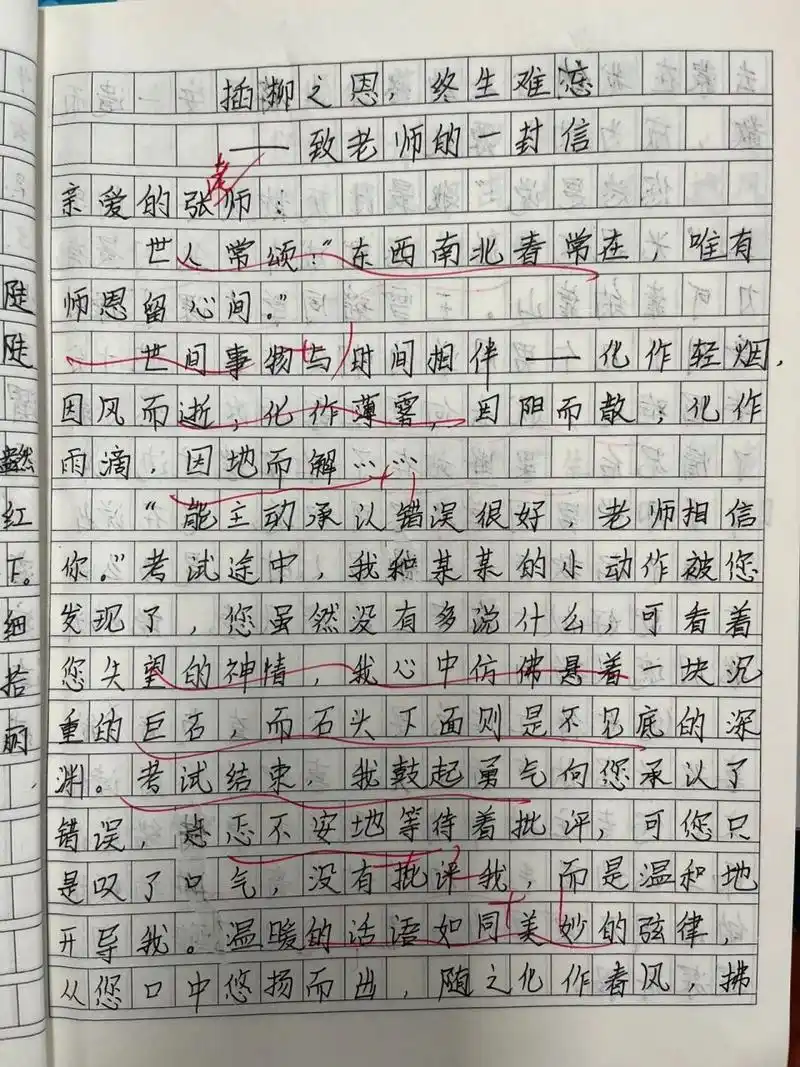 插柳之恩，终生难忘
——致老师的一封信
亲爱的张老师：
世人常颂：“东西南北春常在，唯有
师恩留心间。”
世间事物与时间相伴——化作轻烟，
因风而逝，化作薄雾，因阳而散；化作
雨滴，因地而解……
“能主动承认错误很好，老师相信
你。”考试途中，我和某某的小动作被您
发现了，您虽然没有多说什么，可看着
您失望的神情，我心中仿佛悬着一块沉
重的巨石，而石头下面则是不见底的深
渊。考试结束，我鼓起勇气向您承认了
错误，忐忑不安地等待着批评，可您只
是叹了口气，没有批评我，而是温和地
开导我。温暖的话语如同美妙的弦律，
从您口中悠扬而出，随之化作春风，拂
陡
陡
红
下。
细
拾
丽